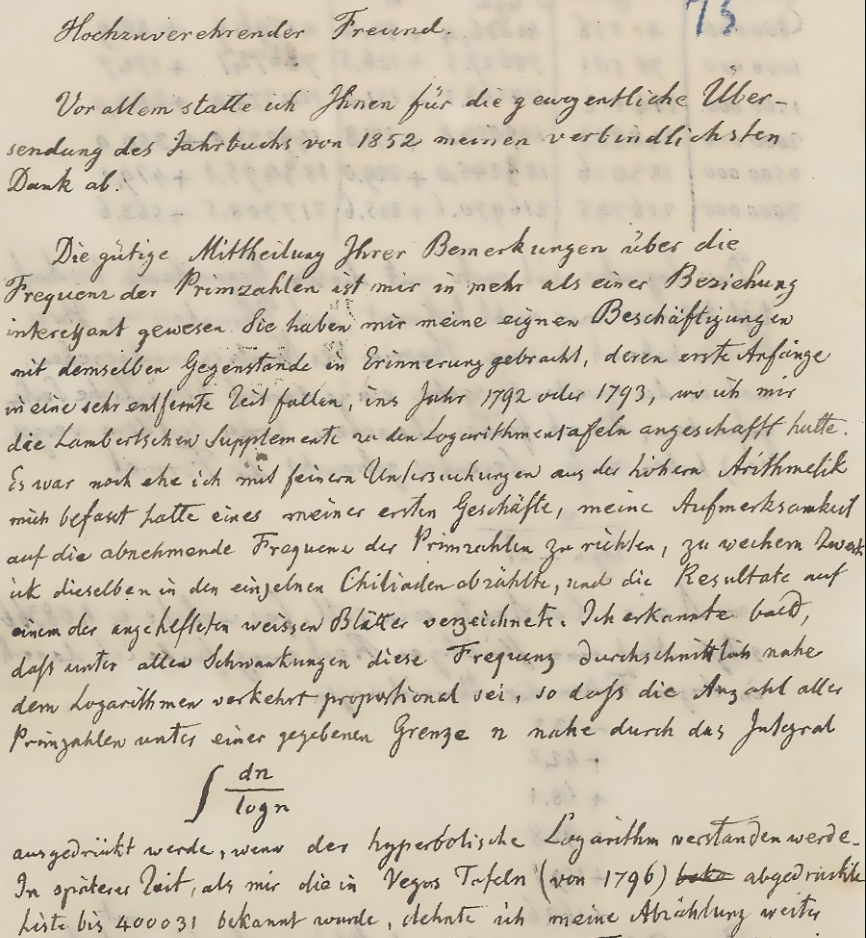 73
Hochzuverehrender Freund.
Vor allem statte ich Ihnen für die gewogentliche Über-
sendung des Jahrbuchs von 1852 meinen verbindlichsten
Dank ab.
Die gütige Mittheilung Ihrer Bemerkungen über die
Frequenz der Primzahlen ist mir in mehr als einer Beziehung
interessant gewesen Sie haben mir meine eignen Beschäftigungen
mit demselben Gegenstande in Erinnerung gebracht, deren erste Anfänge
in eine sehr entfernte Zeit fallen, ins Jahr 1792 oder 1793, wo ich mir
die Lambertschen Supplemente zu den Logarithmentafeln angeschafft hatte.
Es war noch ehe ich mit feinern Untersuchungen aus der höhern Arithmetik
mich befasst hatte eines meiner ersten Geschäfte, meine Aufmerksamkeit
auf die abnehmende Frequenz der Primzahlen zu richten, zu wechem Zweck
ich dieselben in den einzelnen Chiliaden abzählte, und die Resultate auf
einem der angehefteten weissen Blätter verzeichnete. Ich erkannte bald,
daß unter allen Schwankungen diese Frequenz durchschnittlich nahe
dem Logarithmen verkehrt proportional sei, so daß die Anzahl aller
Primzahlen unter einer gegebenen Grenze n nahe durch das Integral
∫ dn/log n
ausgedrückt werde, wenn der hyperbolische Logarithm verstanden werde.
In späterer Zeit, als mir die in Vegas Tafeln (von 1796) abgedruckte
Liste bis 400031 bekannt wurde, dehnte ich meine Abzählung weiter